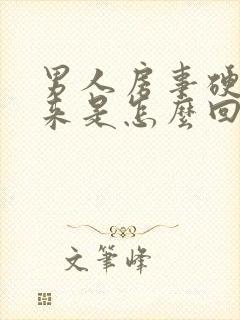 男人房事硬
来是怎麼回
文筆峰